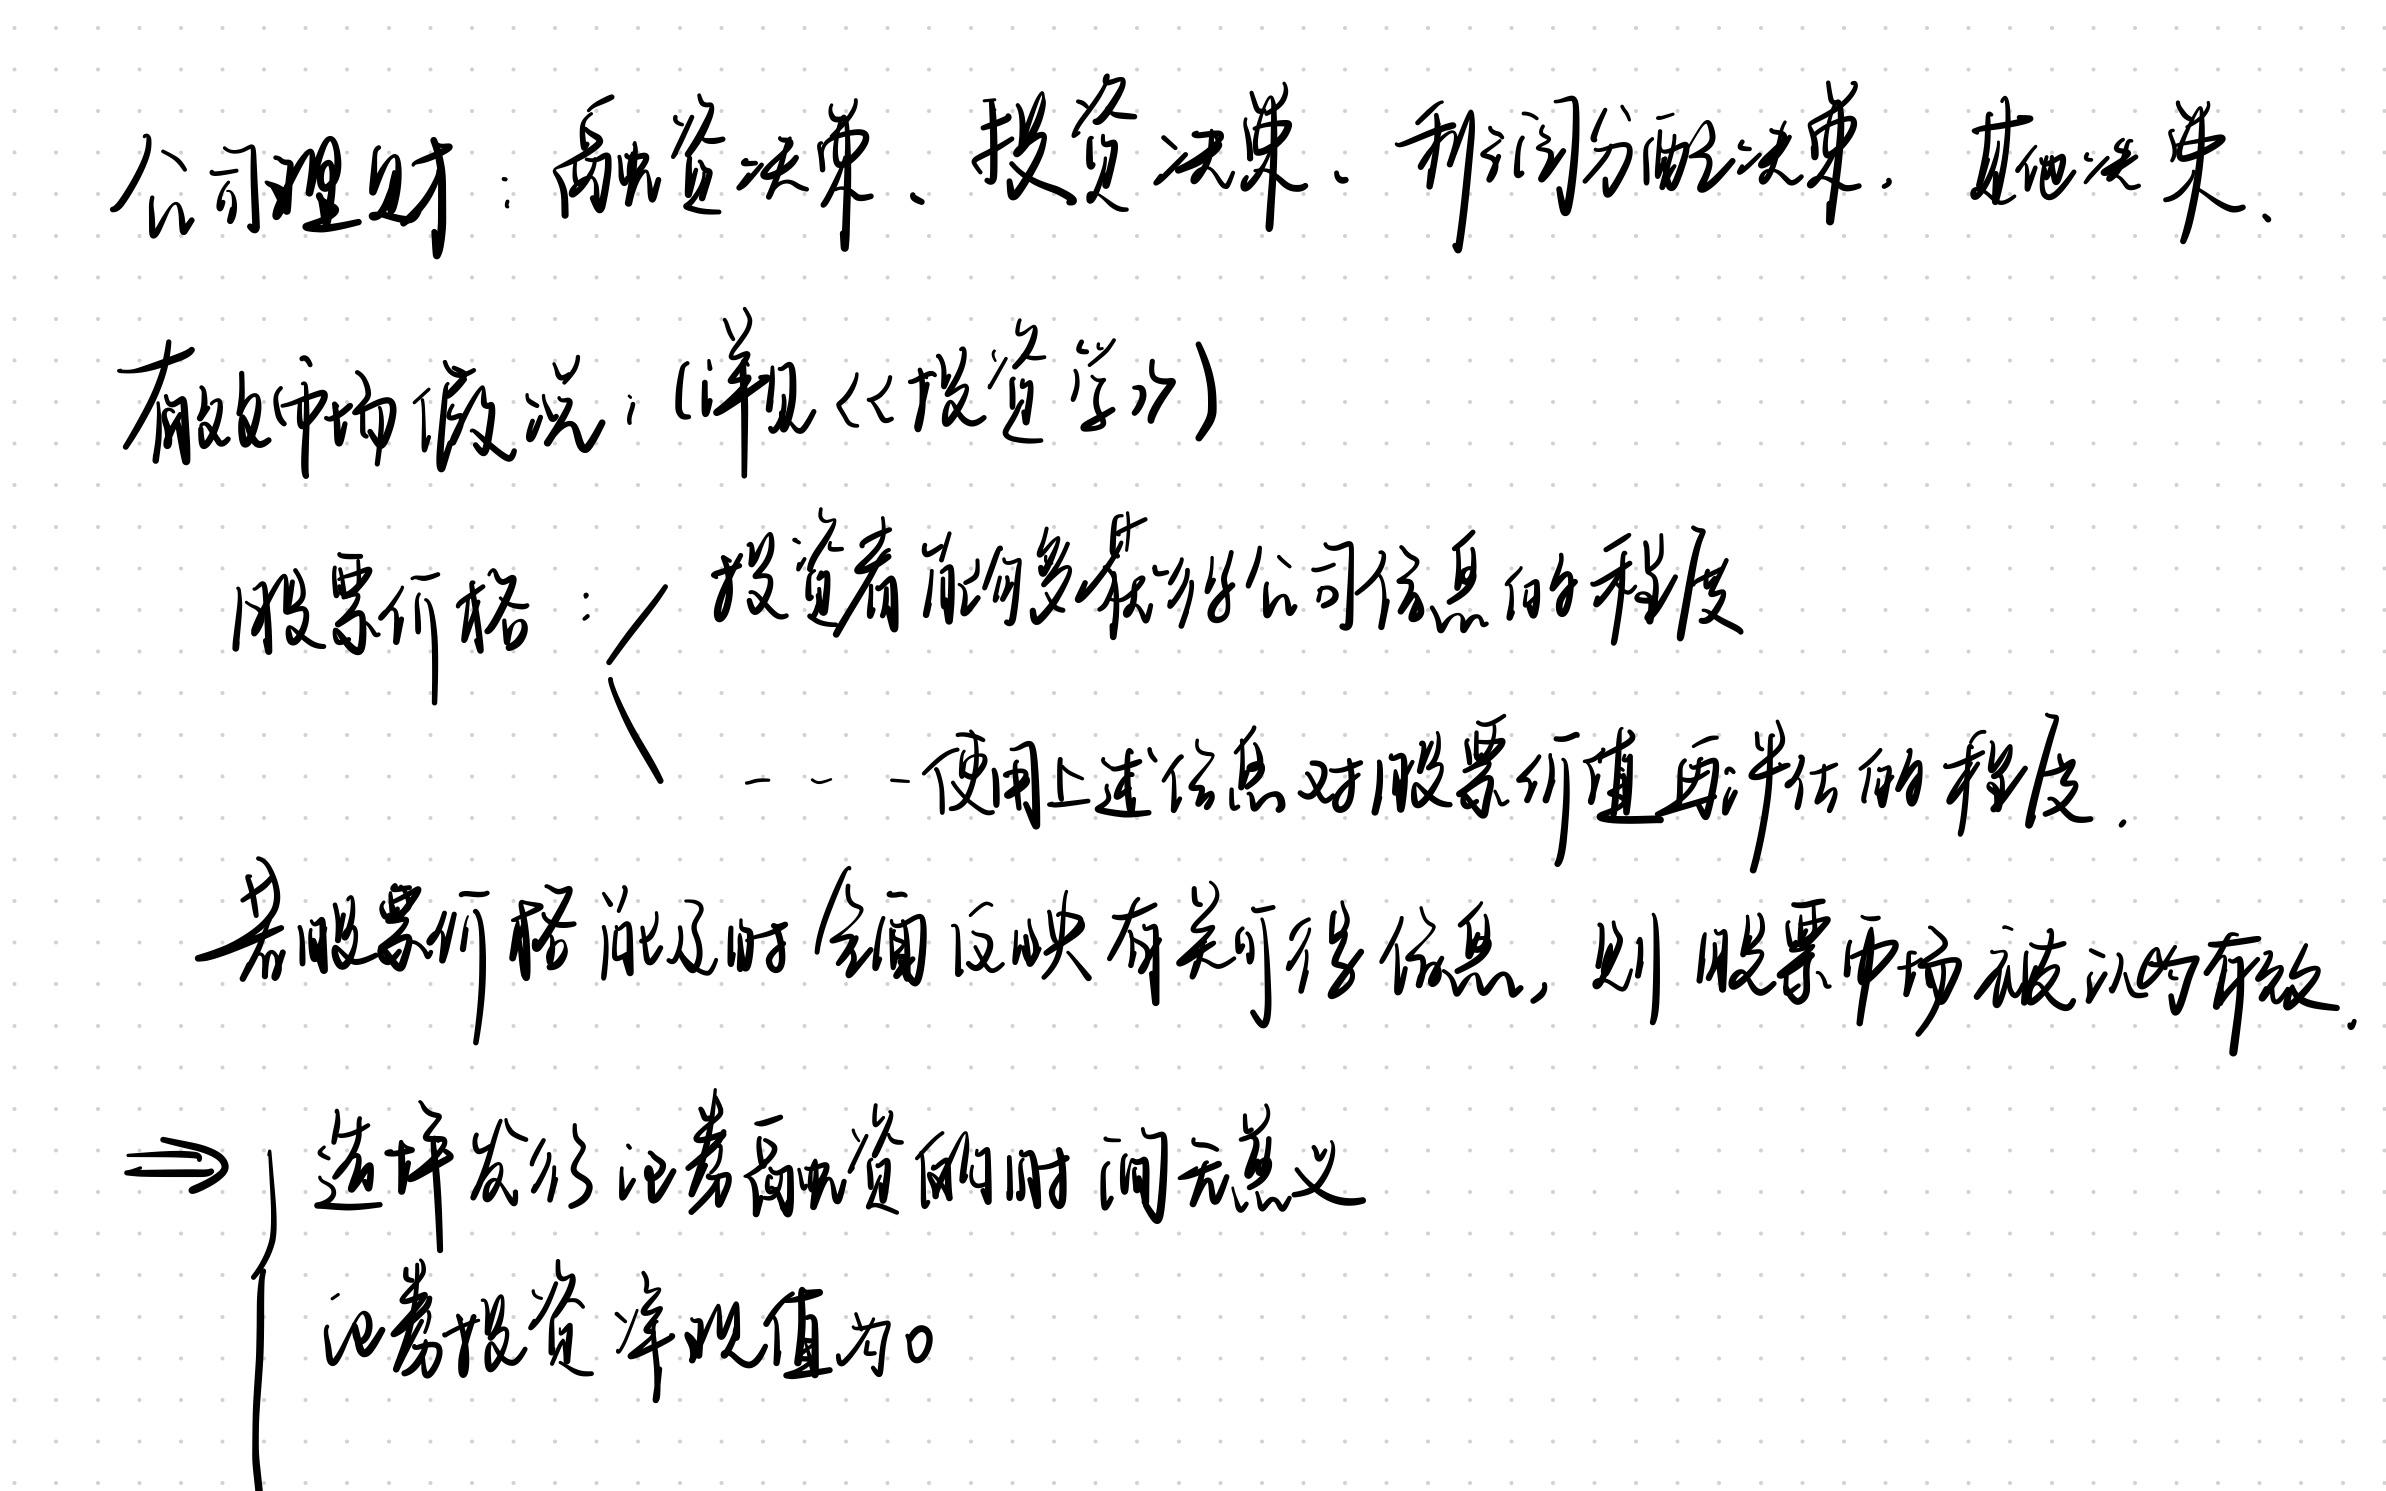 公司理财：融资决策、投资决策、利润分配决策、其他决策.
有效市场假说：(详见《投资学》)
股票价格： 投资者能够获得公司信息的程度
- - - 使用上述信息对股票价值正评估的程度.
若股票价格能及时全面反映有关可得信息，则股票市场被认为有效.
⇒ 选择发行证券融资的时间无意义
证券投资净现值为0